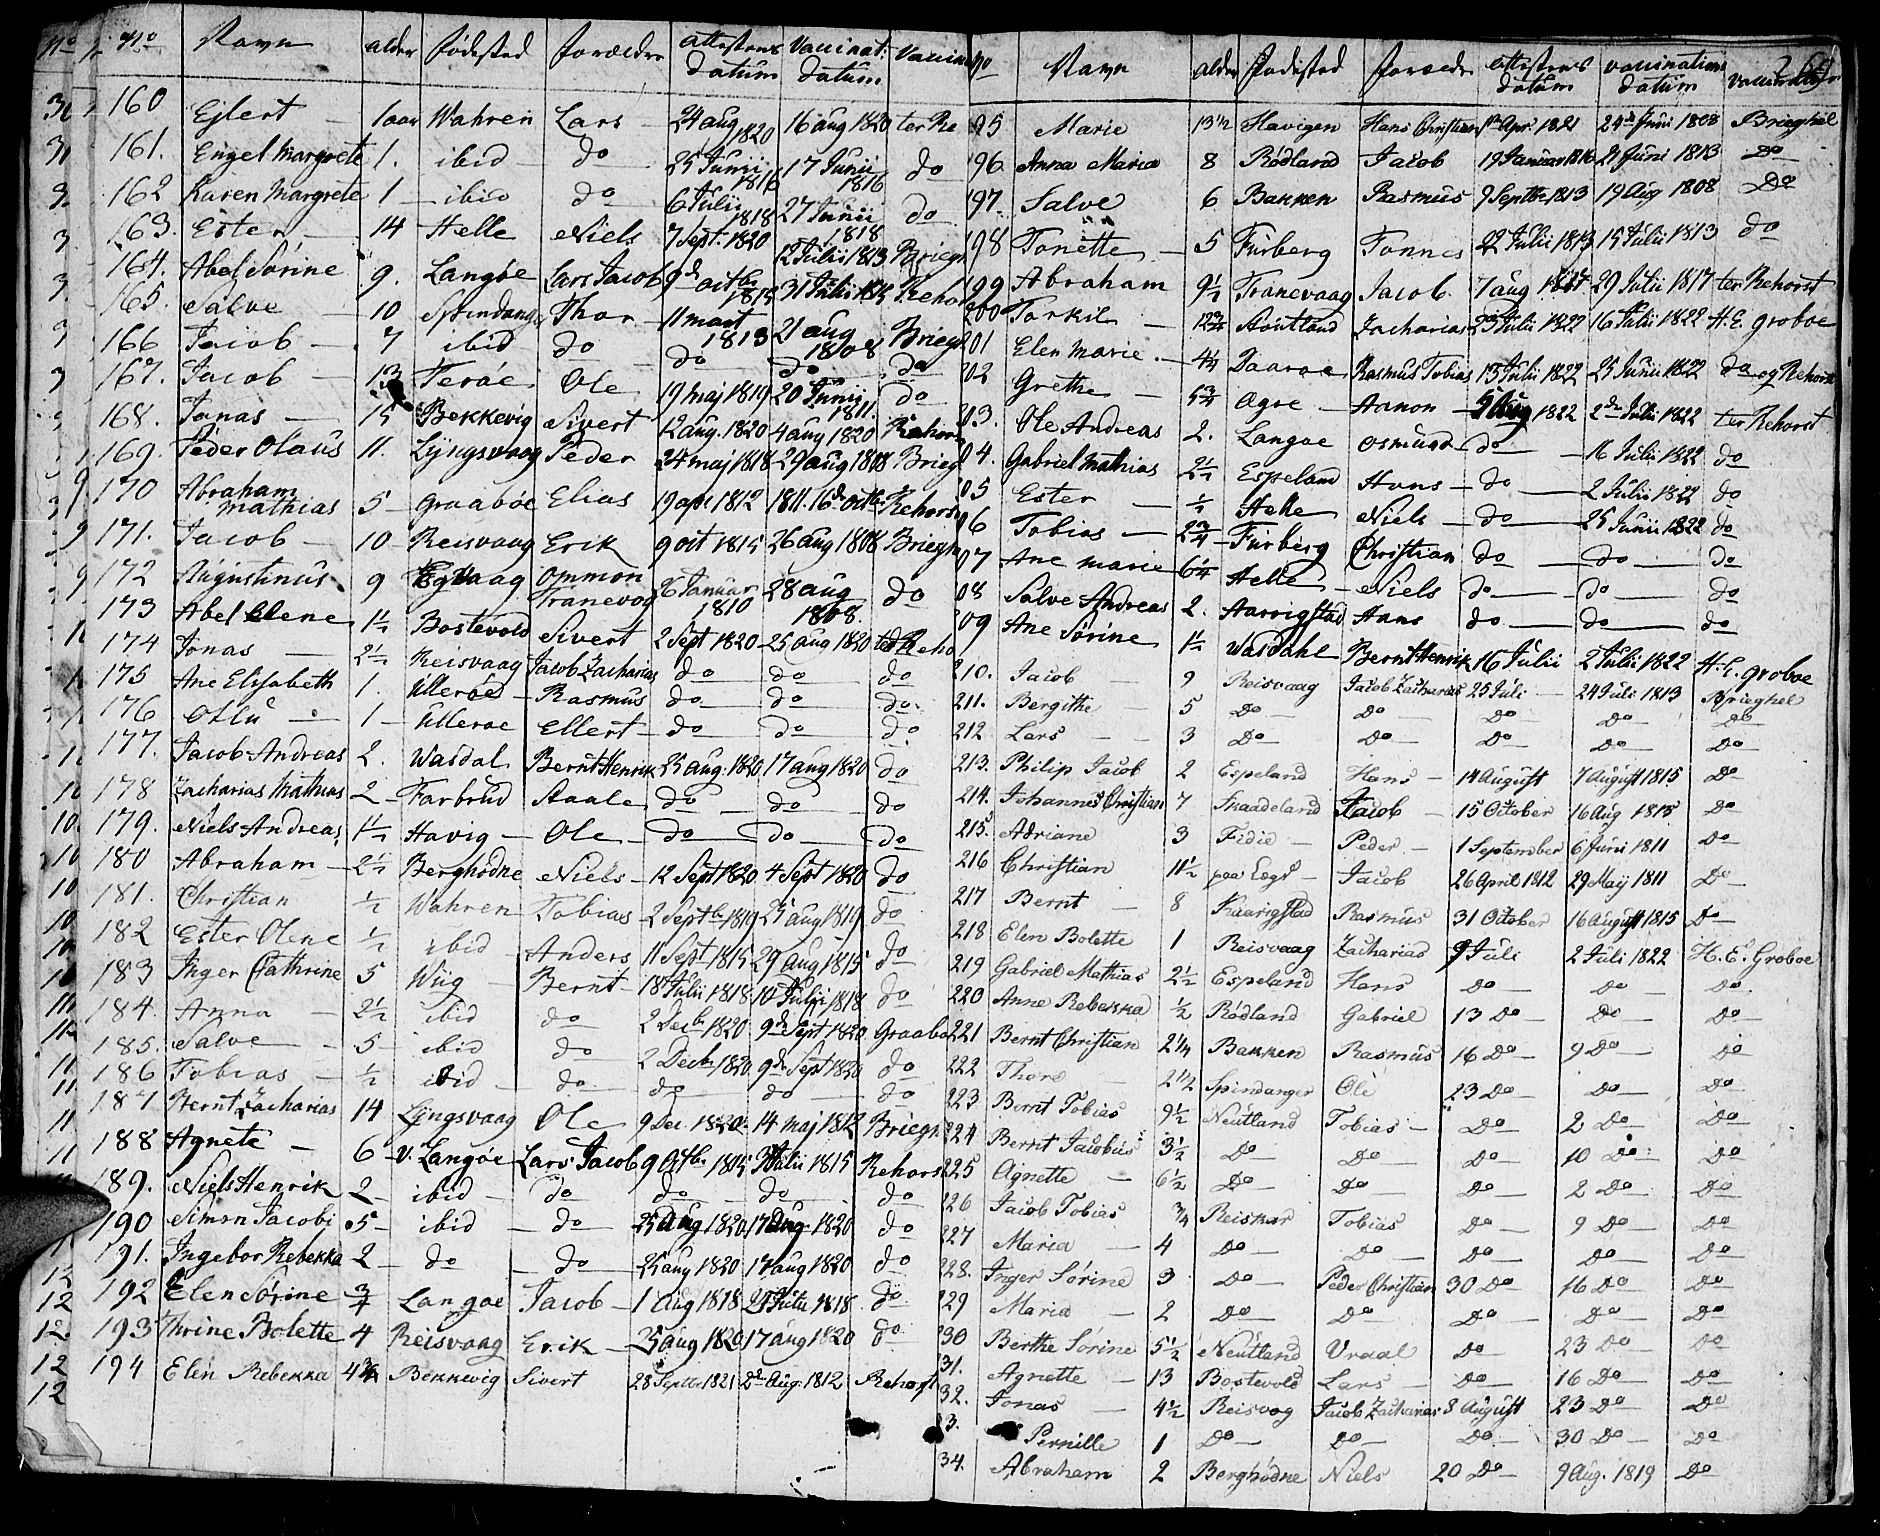 No Navn alder fødested forældre attestens datum Vaccinat: datum Vaccina
160 Ejlert 1 aar Wahren Lars 24 aug 1820 16 aug 1820 ter Re
161. Engel Margrete 1. ibid do 25 Junii 1816 17 Junii 1816 do
162 Karen Margrete 1 ibid do 6 Julii 1818 27 Junii 1818 do
163. Ester 14 Helle Niels 7 Sept. 1820 12 Julii 1813 Briegh
164. Abel Sørine 9. Langøe Lars Jacob 9de octbr 1815 31 Julii 1815 Rehor
165. Salve 10 Spindange Thor 11 mart 1813 21 aug 1808 Briegh
166 Jacob 7 ibid do do do do
167. Jacob 13 Ferøe Ole 19 maj 1819 20 Junii 1811. do
168. Jonas 15 Bekkevig Sivert 12 aug. 1820 4 aug 1820 Rehors
169. Peder Olaus 11. Lyngsvaag Peder 24 maj 1818 29 aug 1808 Briegh
170 Abraham Mathias 5 graabøe Elias 19 apr. 1812 1811. 16de octbr Rehors
171. Jacob 10 Reisvaag Erik 9 oct 1815 26 aug 1808 Briegh
172 Augustinus 9 Egvaag Ommon Tranevog 26 Januar 1810 28 aug 1808. do
173 Abel Elene 1½ Bostevold Sivert 2 Sept 1820 25 aug 1820 ter Reho
174 Jonas 2½ Reisvaag Jacob Zacharias do do do
175 Ane Elisabeth 1. Ullerøe Rasmus do do do
176 Ollu 1 Ullerøe Ellert do do do
177. Jacob Andreas 2. Wasdal Bernt Henrik 25 aug. 1820 17 aug 1820 do
178 Zacharias Mathias 2 Farbrud Aaale do do do
179. Niels Andreas 1½ Havig Ole do do do
180 Abraham 2½ Berghødne Niels 12 Sept 1820 4 Sept 1820 do
181. Christian ½ Wahren Tobias 2 Septbr 1819 25 aug 1819 do
182 Ester Olene ½ ibid Anders 11 Sept 1815 29 aug 1815 do
183 Inger Cathrine 5 Wiig Bernt 18 Julii 1818 10 Julii 1818 do
184. Anna 2½ ibid do 2 Decbr 1820. 9de Sept 1820 Graabo
185. Salve 5 ibid do 2 Decbr 1820. 9de Sept 1820 do
186 Tobias ½ ibid do do do do
187 Bernt Zacharias 14 Lyngsvaag Ole 9 Dec. 1820 14 maj 1812 Briegh
188 Agnete 6 v. Langøe Lars Jacob 9 Octbr 1815 31 Julii 1815 Rehors
189. Niels Henrik 2 ibid do do do do
190 Simon Jacobi 5 ibid do 25 aug 1820 17 aug 1820 do
191. Ingebor Rebekka 2 do do 25 aug 1820 17 aug 1820 do
192 Elen Sørine ¾ Langøe Jacob 1 Aug 1818 21 Julii 1818. do
193 Thrine Bolette 4 Reisvaag Erik 25 aug 1820 17 aug 1820 do
194 Elen Rebekka 4¾ Bekkevig Sivert 28 Septbr 1821 2de Aug. 1812 Rehorst
No Navn alder Fødested forældre attestens datum vaccinations datum
95 Marie 13½ Havigen Hans Christian 1te Apr. 1821 24de Junii 1808 Brieghel
96. Anna Maria 8 Rødland Jacob 19 Januar 1816 21 Juni 1813 Do
97. Salve 6 Bakken Rasmus 9 Septbr 1813 19 Aug 1808 Do
98 Tonette 5 Furberg Tonnes 22 Julii 1813 15 Julii 1813 do
99 Abraham 9½ Tranevaag Jacob. 7 aug 1817 29 Julii 1817 ter Rehorst
200 Torkil 12¾ Stoutland Zacharias 23 Julii 1822 16 Julii 1822 H. E. groboe
201 Elen Marie 4¼ Daarøe Rasmus Tobias 13 Julii 1822 25 Junii 1822 do og Rehorst
02 Grethe 5¾ Ogre Aanon 9 Aug 1822 2de Julii 1822 ter Rehorst
03. Ole Andreas 2. Langøe Osmund do 16 Julii 1822 do
04. Gabriel Mathias 2½ Espeland Hans do 2 Julii 1822 do
05 Ester ½ Helle Niels do 25 Junii 1822 do
06 Tobias 2¾ Furberg Christian do do do
07 Ane Marie 6¼ Helle Niels do do do
08 Salve Andreas 2. Aarrigstad Hans do do do
09 Ane Sørine 1½ Wasdahl Bernt Henrik 16 Julii 2 Julii 1822 H. E. groboe
210. Jacob 9 Reisvaag Jacob Zacharias 25 Juli 24 Juli 1813 Brieghel
211. Bergithe 5 Do Do Do Do Do
212 Lars 3 Do Do Do Do Do
213. Philip Jacob 2 Espeland Hans 14 August 7 August 1815 Do
214. Johannes Christian 7 Skaadeland Jacob 15 October 16 Aug 1815 Do
215. Adriane 3 Fidie Peder 1 September 6 Juni 1811 Do
216 Christian 11½ paa Lægd Jacob 26 April 1812 29 Maÿ 1811 Do
217 Bernt 8 Kaarigstad Rasmus 31 October 16 August 1815 Do
218 Elen Bolette 1 Reisvaag Zacharias 9 Juli 2 Juli 1822 H. E. Groboe
219 Gabriel Mathias 2½ Espeland Hans Do Do Do
220 Anne Rebekka ½ Rødland Gabriel 13 Do Do Do
221 Bernt Christian 2¼ Bakken Rasmus 16 Do 9 Do Do
222 Thore 2½ Spindanger Ole 23 Do Do Do
223 Bernt Tobias 9½ Neutland Tobias Do 2 Do Do
224 Bernt Jacobus 3½ Do Do Do 10 Do Do
225 Agnette 6½ Do Do Do 2 Do Do
226 Jacob Tobias ¾ Reiskar Tobias Do 9 Do Do
227 Maria 4 Do Do Do Do Do
228. Inger Sørine 3 Do Peder Christian 30 Do 16 Do Do
229 Maria 2 Do Do Do Do Do
230 Berthe Sørine 5½ Neutland Vraal Do 23 Do Do
31. Agnette 13 Bostevold Lars Do 16 Do Do
32. Jonas 4½ Reisvog Jacob Zacharias 8 August 23 Do Do
3. Pernille 1 Do Do Do 30 Do Do
34. Abraham 2 Berghødne Niels 20 Do 9 Aug. 1819 Do